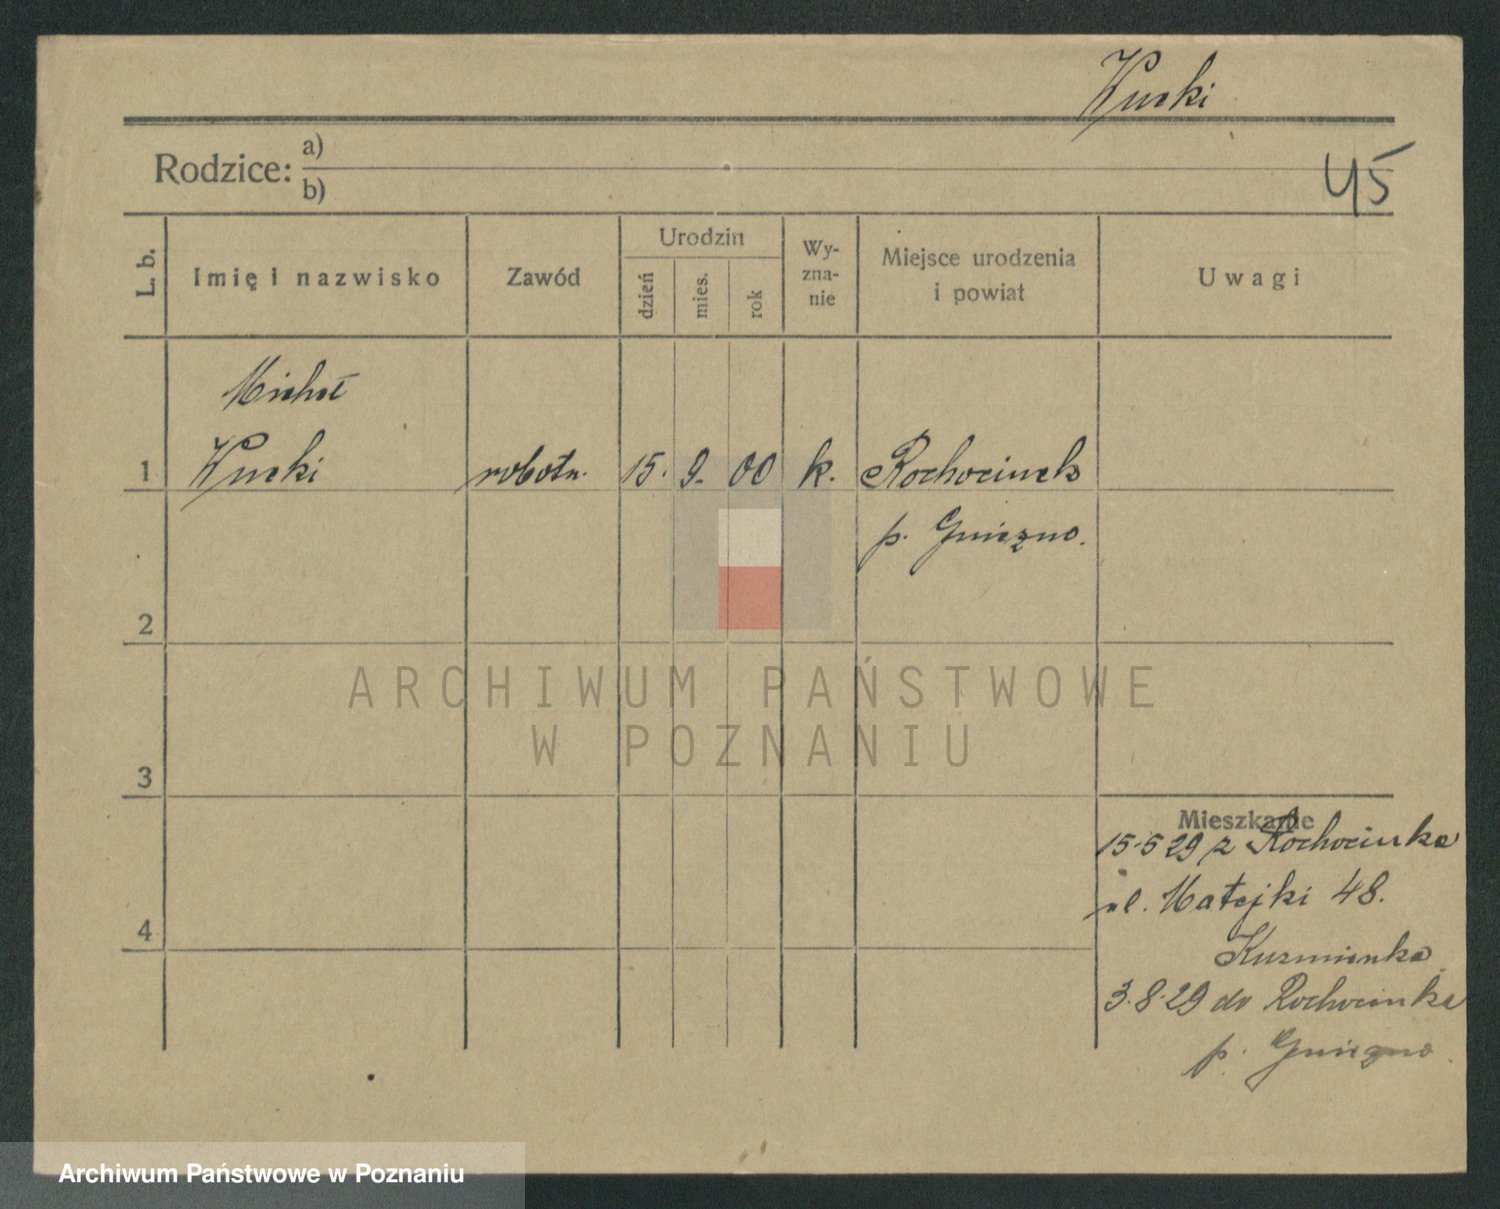 Kucki
45
Rodzice: a)
b)
L. b. Imię i nazwisko Zawód Urodzin dzień mies. rok Wy-zna-nie Miejsce urodzenia i powiat Uwagi
Michał
1 Kucki robotn. 15. 9. 00 k. Rochocinek
p. Gniezno.
2
ARCHIWUM PAŃSTWOWE
W POZNANIU
3
Mieszkanie
15.5 29 z Rochocinka
ul. Matejki 48.
4
3.8.29 do Rochocinka
p. Gniezno.
Archiwum Państwowe w Poznaniu